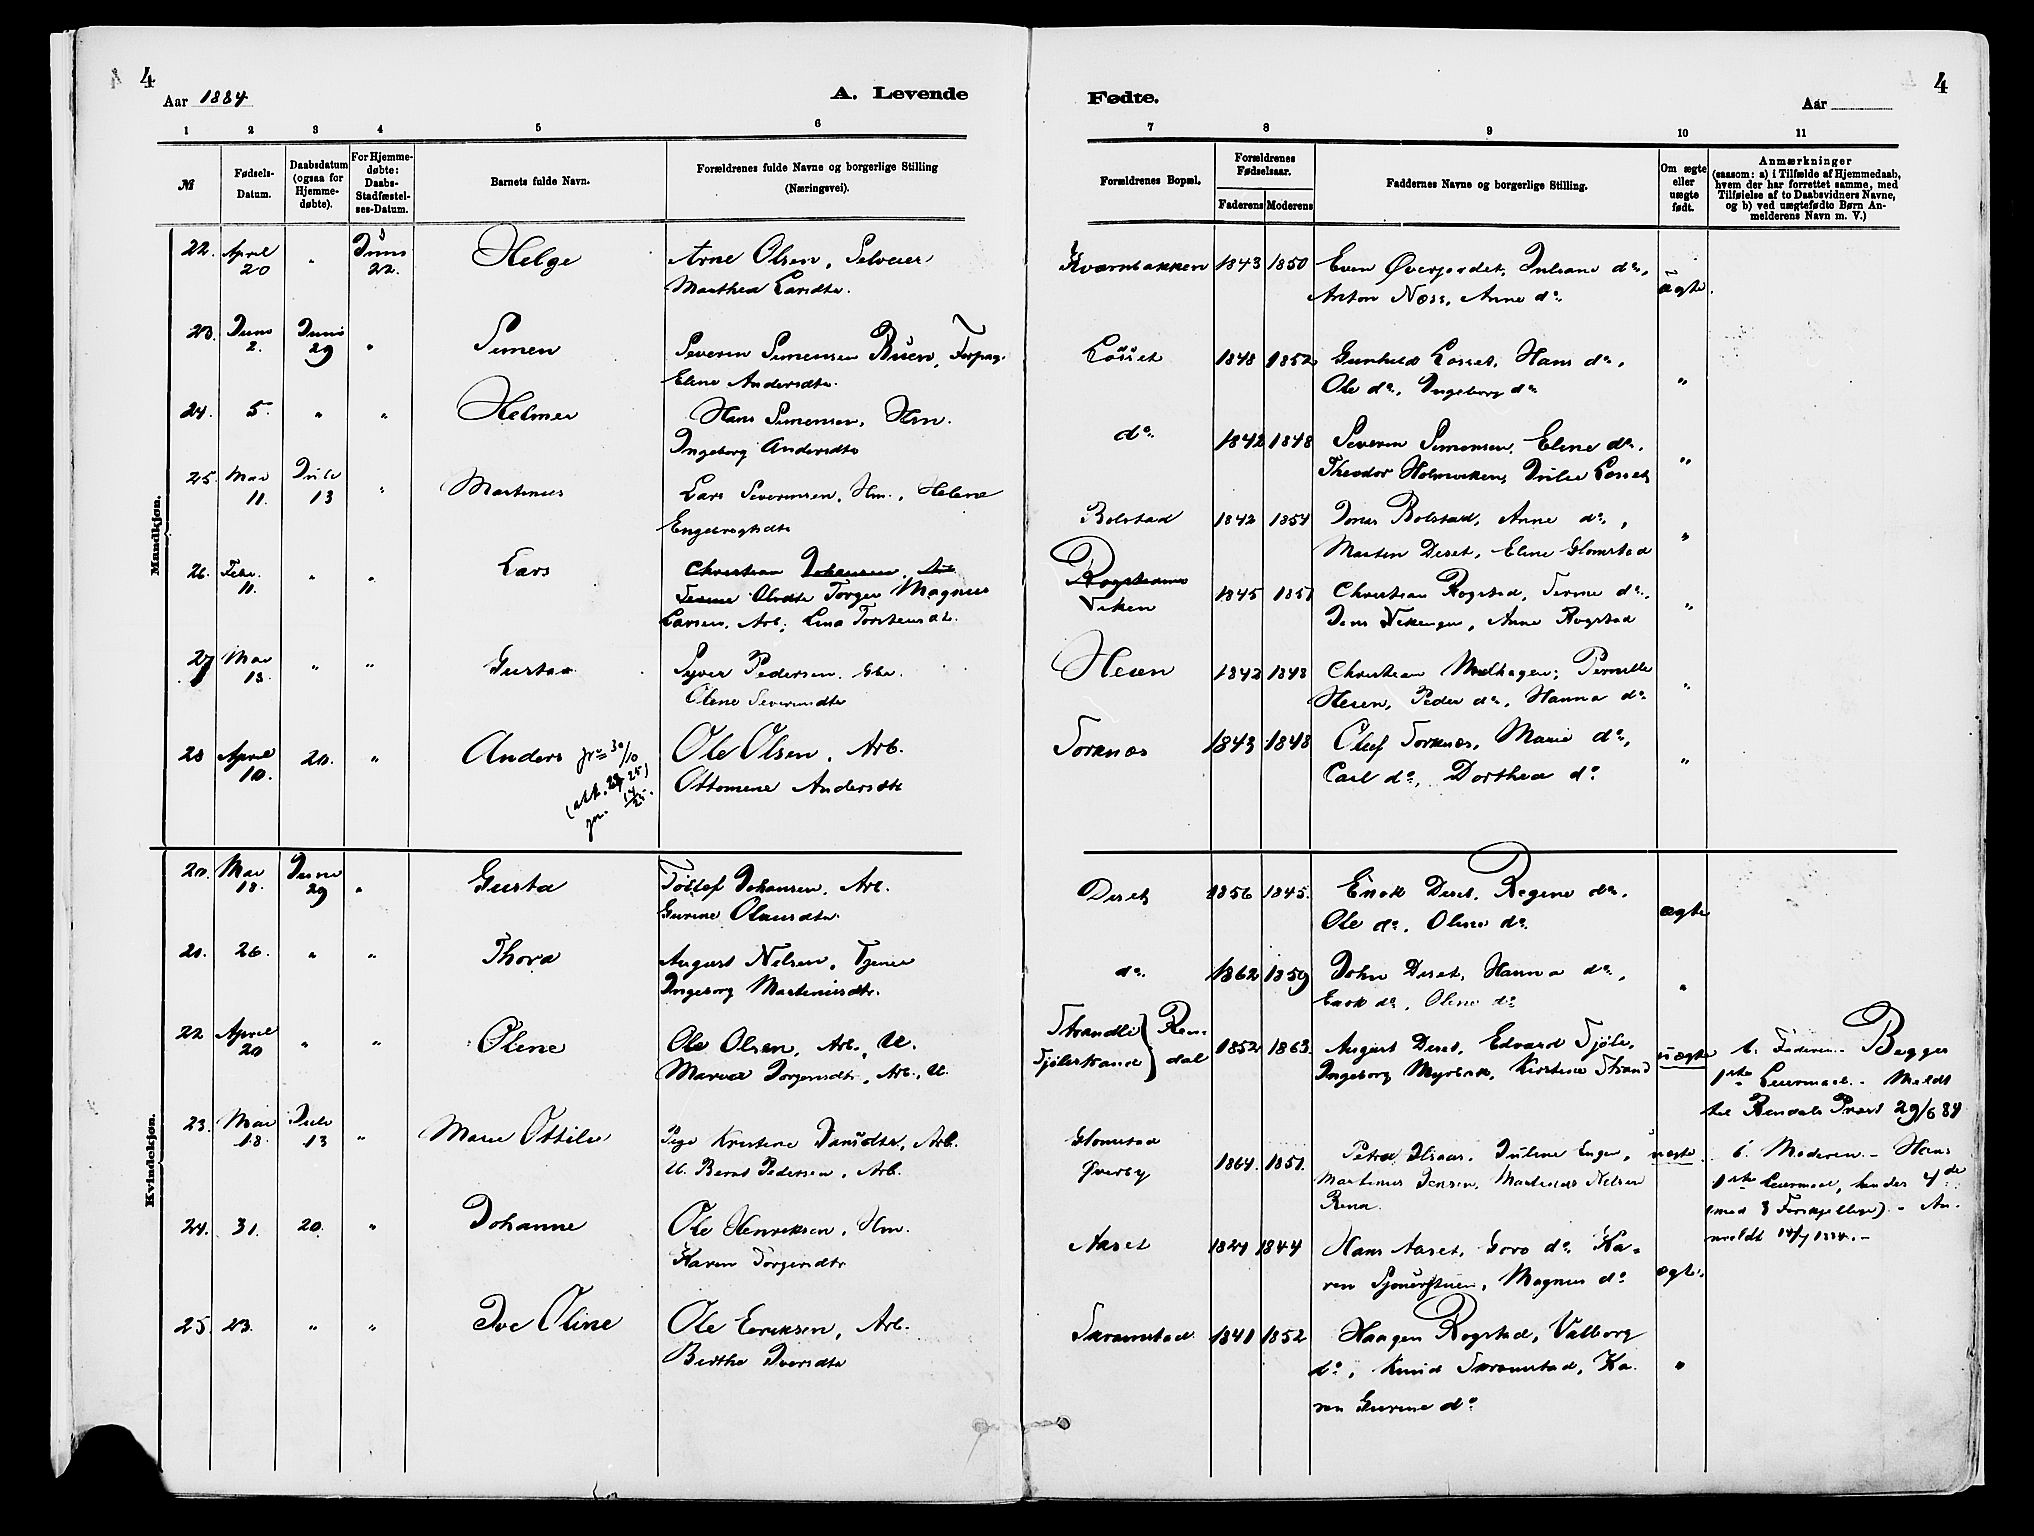 4
Aar 1884
A. Levende
1 2 3 4 5 6
№
Fødsels-
Datum.
Daabsdatum
(ogsaa for
Hjemme-
døbte).
For Hjemme-
døbte:
Daabs-
Stadfæstel-
ses-Datum.
Barnets fulde Navn.
Forældrenes fulde Navne og borgerlige Stilling
(Næringsvei).
Mandkjøn.
22. April 20 " Juni 22. Helge Arne Olsen, Selveier
Marthea Larsdtr.
23. Juni 2. Juni 29 " Simen Severin Simensen Buen, Forpag.
Eline Andersdtr.
24. 5. " " Helmer Hans Simensen, Hm.
Ingeborg Andersdtr
25. Mai 11. Juli 13 " Martinus Lars Severinsen, Hm., Helene
Engebregtsdtr
26. Febr. 11. " " Lars Christian Johansen, Arb
Olsdtr Torger Magnus
Larsen, Arb; Lina Torstensdtr.
27 Mai 13. " " Gustav Syver Pedersen, Gbr.
Oline Severinsdtr
28 April 10. 20. " Anders Ole Olsen, Arb.
Ottomine Andersdtr
Kvindekjøn.
20. Mai 18. Juni 29 " Gusta Tollef Johansen, Arb.
Gurine Olausdtr.
21. 26. " " Thora August Nilsen, Tjener
Ingeborg Martinusdtr.
22. April 20 " " Oline Ole Olsen, Arb., U.
Maren Jørgensdtr, Arb., U.
23. Mai 18. Juli 13 " Marie Ottilie Pige Kristine Jansdtr, Arb.
U. Bernt Pedersen, Arb.
24. 31. 20. " Johanne Ole Henriksen, Hm.
Karen Torgersdtr
25. 23. " " Ive Oline Ole Eriksen, Arb.
Berthe Iversdtr
4
Fødte.
Aar
7 8 9 10 11
Forældrenes Bopæl.
Forældrenes
Fødselsaar.
Faderens Moderens
Faddernes Navne og borgerlige Stilling.
Om ægte
eller
uægte
født.
Anmærkninger
(saasom: a) i Tilfælde af Hjemmedaab,
hvem der har forrettet samme, med
Tilføielse af to Daabsvidners Navne,
og b) ved uægtefødte Børn An-
melderens Navn m. V.)
Kværnbakken 1843 1850 Even Øvergaardet, Juliane do,
Anton Næss, Anne do. ægte.
Løsset 1848 1852 Gunhild Løsset, Hans do,
Ole do, Ingeborg do "
do. 1842 1848 Severin Simensen, Eline do.
Theodor Holmviken, Julie Løsset "
Bolstad 1842 1854 Jonas Bolstad, Anne do,
Martin Deset, Eline Glomstad "
Rogstad
Viken 1845 1851 Christian Rogstad, do,
Jens Vikengen, Anne Rogstad "
Hesen 1842 1848 Christian Modhagen; Pernille
Hesen, Peder do, Hanna do "
Torknæs 1843 1848 Oluf Torknæs, Marie do,
Carl do, Dorthea do "
Deset 1856 1845. Enok Deset, Regine do,
Ole do, Oline do. ægte
do. 1862 1859 John Deset, Hanna do,
Enok do, Oline do "
Strandli
Sjølistrand } Ren-
dal 1852 1863. August Deset, Edvard Sjøli,
Ingeborg Myrbak, Kirstine Strand uægte b. Faderen. Begges
1ste Leiermaal. Meldt
til Rendals Præst 29/6 84
Glomstad
Øverby 1864. 1851. Petra Ilsaas, Juline Enger,
Martinus Jensen, Martinus Nilsen
Rena. uægte. b. Moderen. - Hans
1ste Leiermaal, hendes 4de
(med 3 Forskjellige). - An-
meldt 14/7 1884. -
Aaset 1824 1844 Hans Aaset, Goro do, Ka-
ren, Magnus do ægte.
Skramstad 1841 1852 Haagen Rogstad, Valborg
do, Knud Skramstad, Ka-
ren Gurine do "